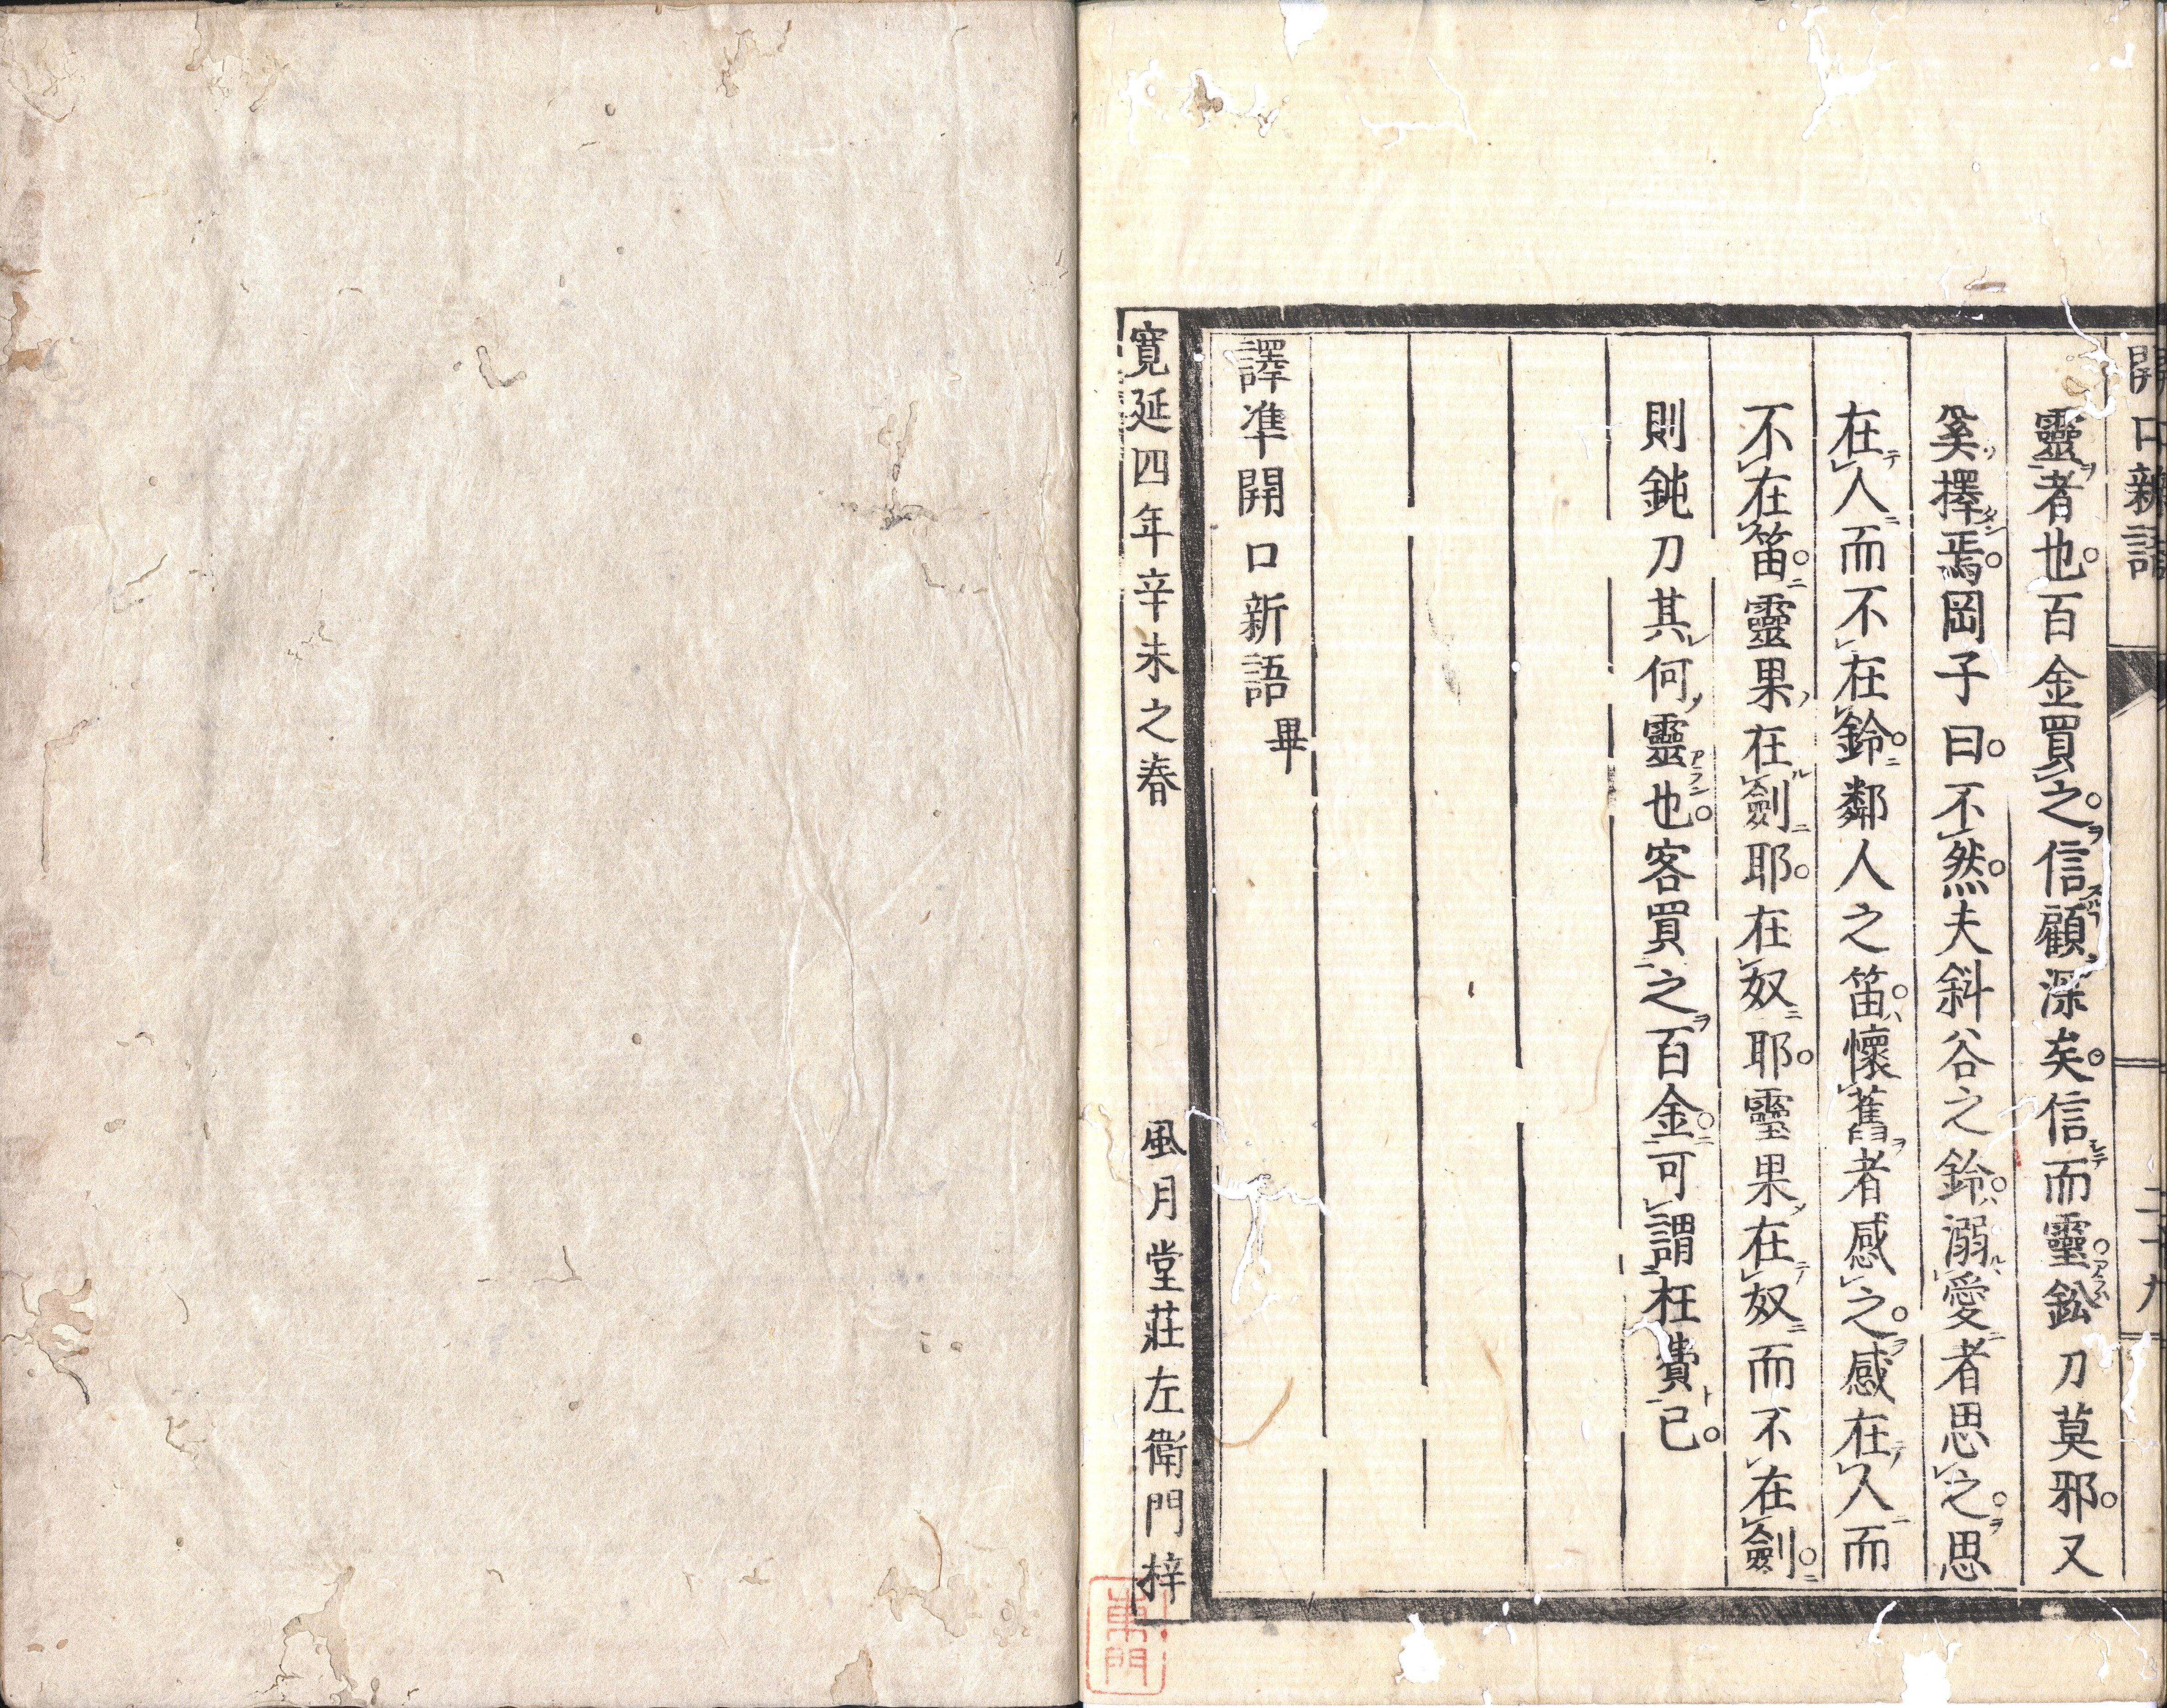 開口新語
二十九
靈者也。百金買之。信顧深矣。信而靈。鈆刀莫邪。又
奚擇焉。岡子曰。不然。夫斜谷之鈴。溺愛者思之。思
在人而不在鈴。鄰人之笛。懷舊者感之。感在人而
不在笛。靈果在劍耶。在奴耶。靈果在奴而不在劍。
則鈍刀其何靈也。客買之百金。可謂枉費已。
譯準開口新語畢
寛延四年辛未之春 風月堂莊左衛門梓
東門